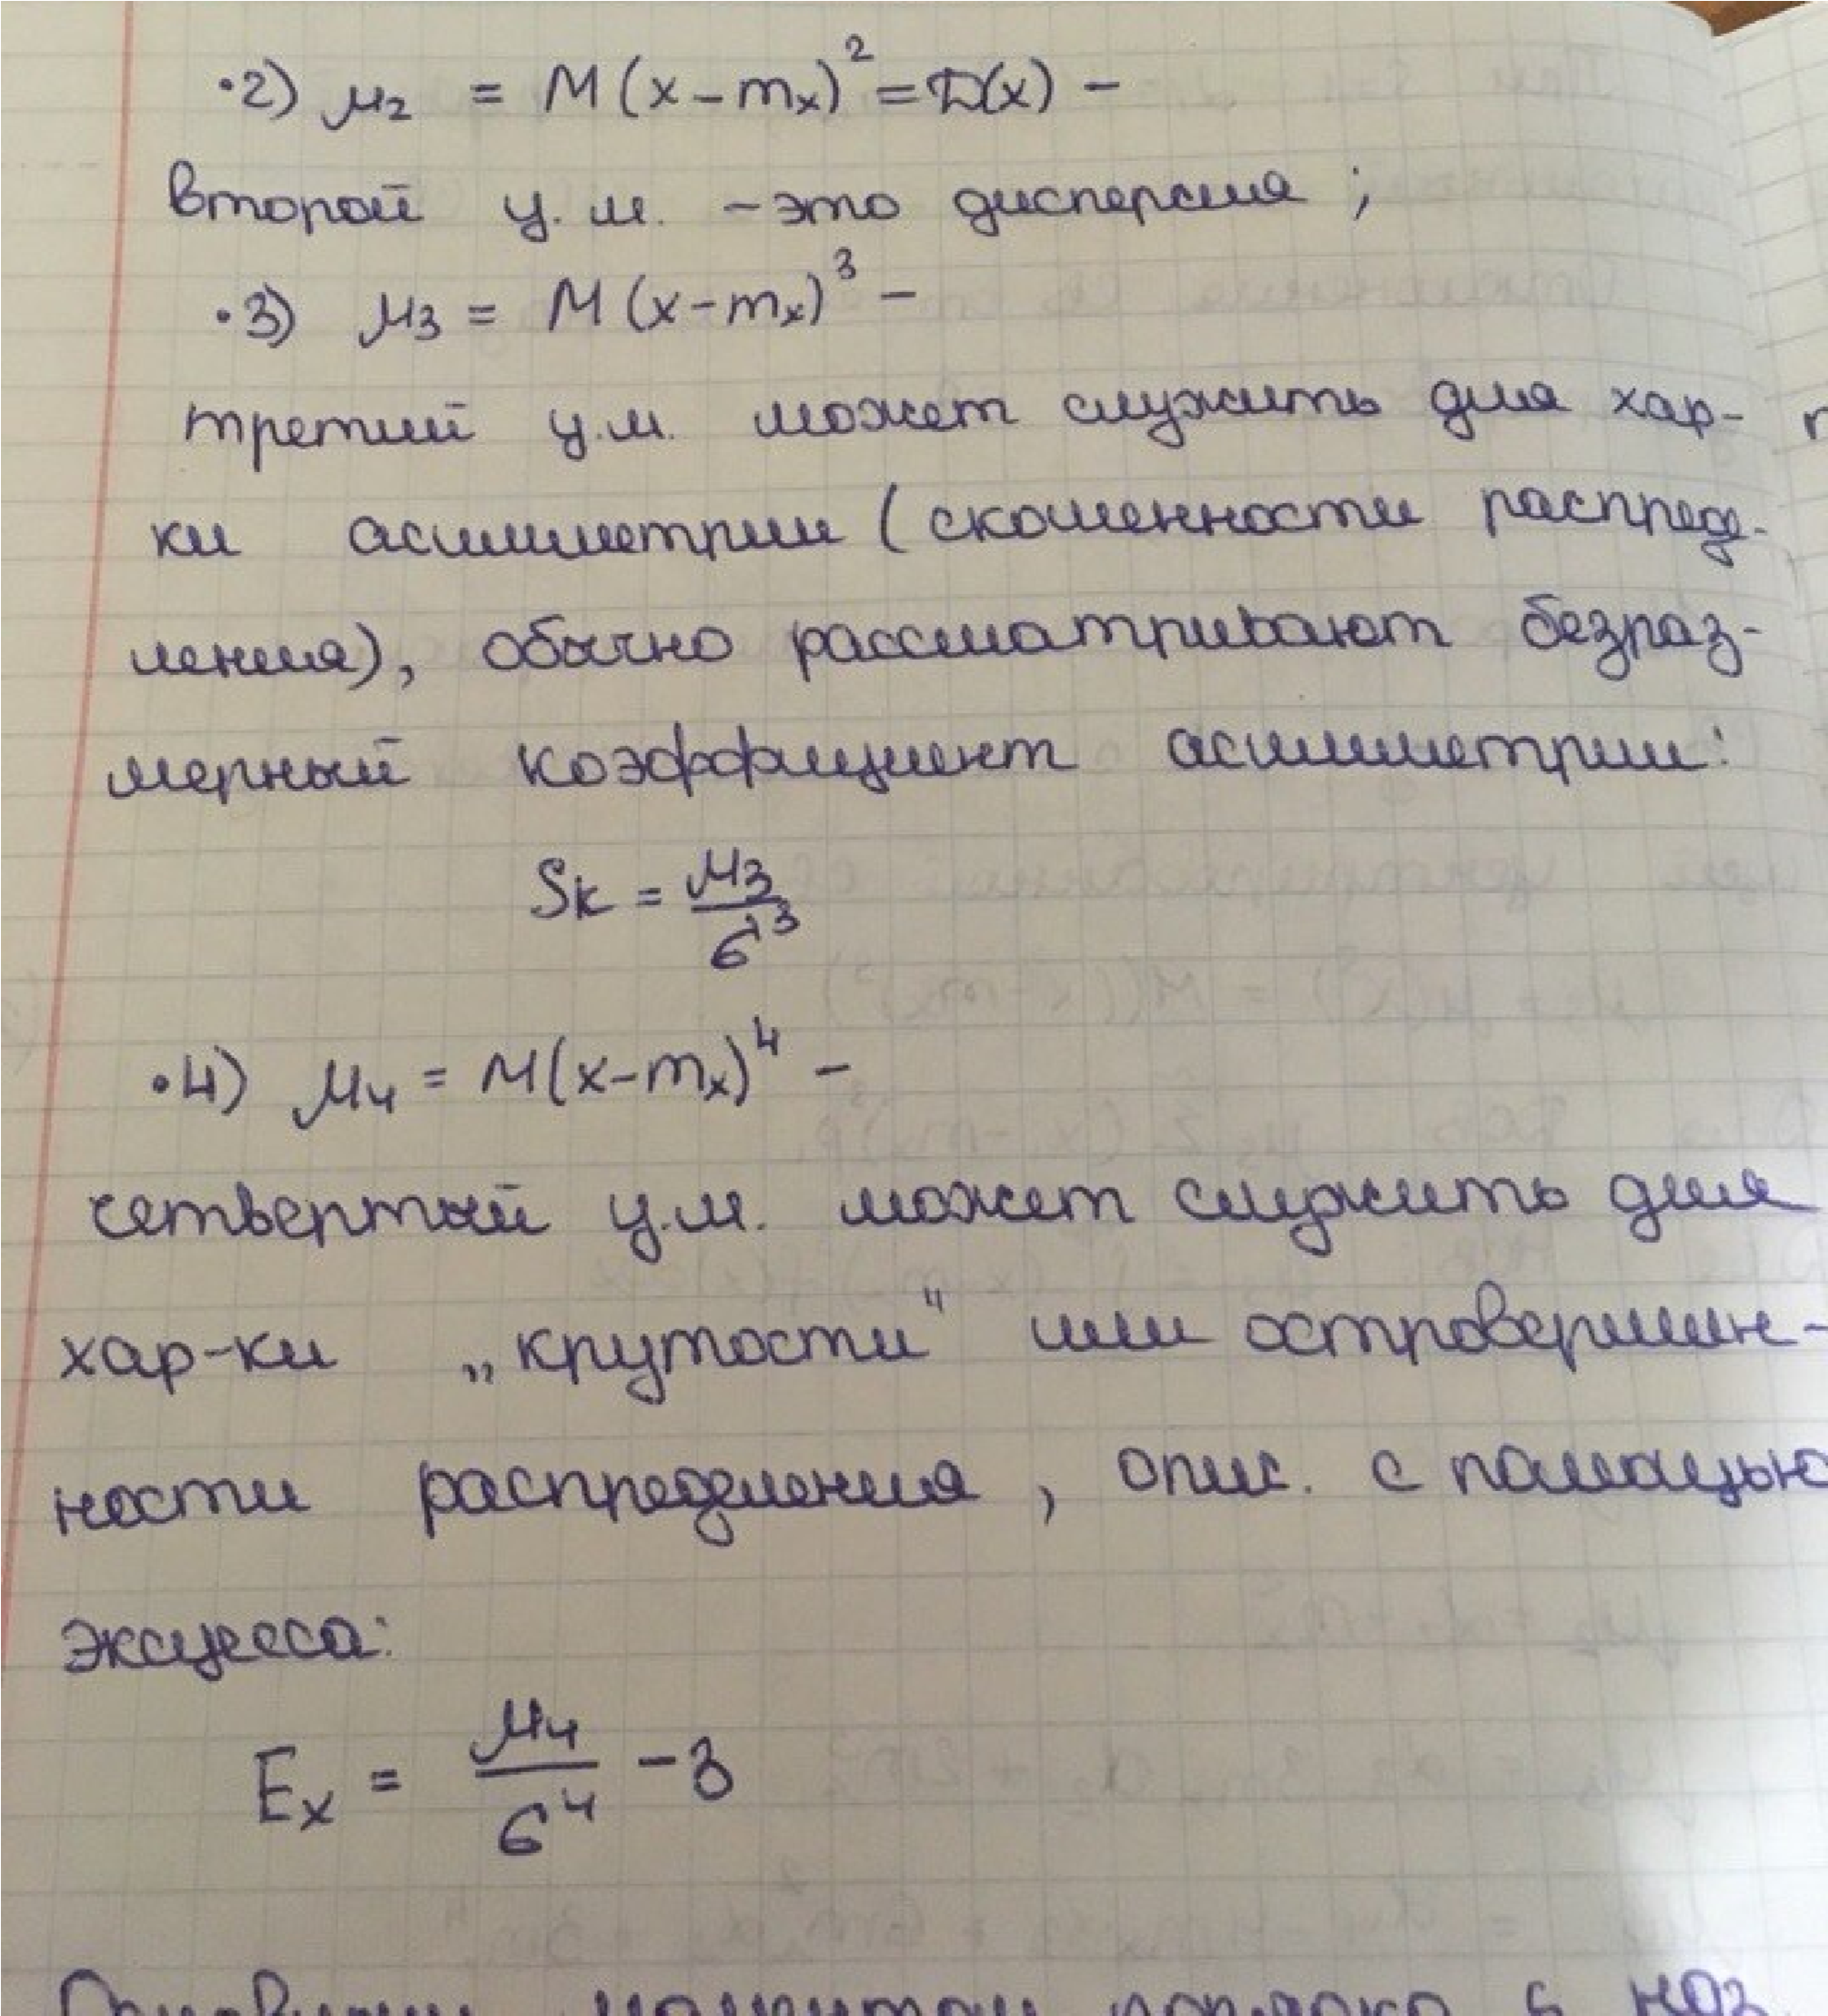 •2) μ₂ = M(x-mₓ)² = D(x) -
второй ц.м. - это дисперсия ;
•3) μ₃ = M(x-mₓ)³ -
третий ц.м. может служить для хар-
ки асимметрии (скошенности распред-
ления), обычно рассматривают безраз-
мерный коэффициент асимметрии:
Sk = μ₃/σ³
•4) μ₄ = M(x-mₓ)⁴ -
четвертый ц.м. может служить для
хар-ки „крутости" или островершин-
ности распределения, опис. с помощью
эксцесса:
Eₓ = μ₄/σ⁴ - 3